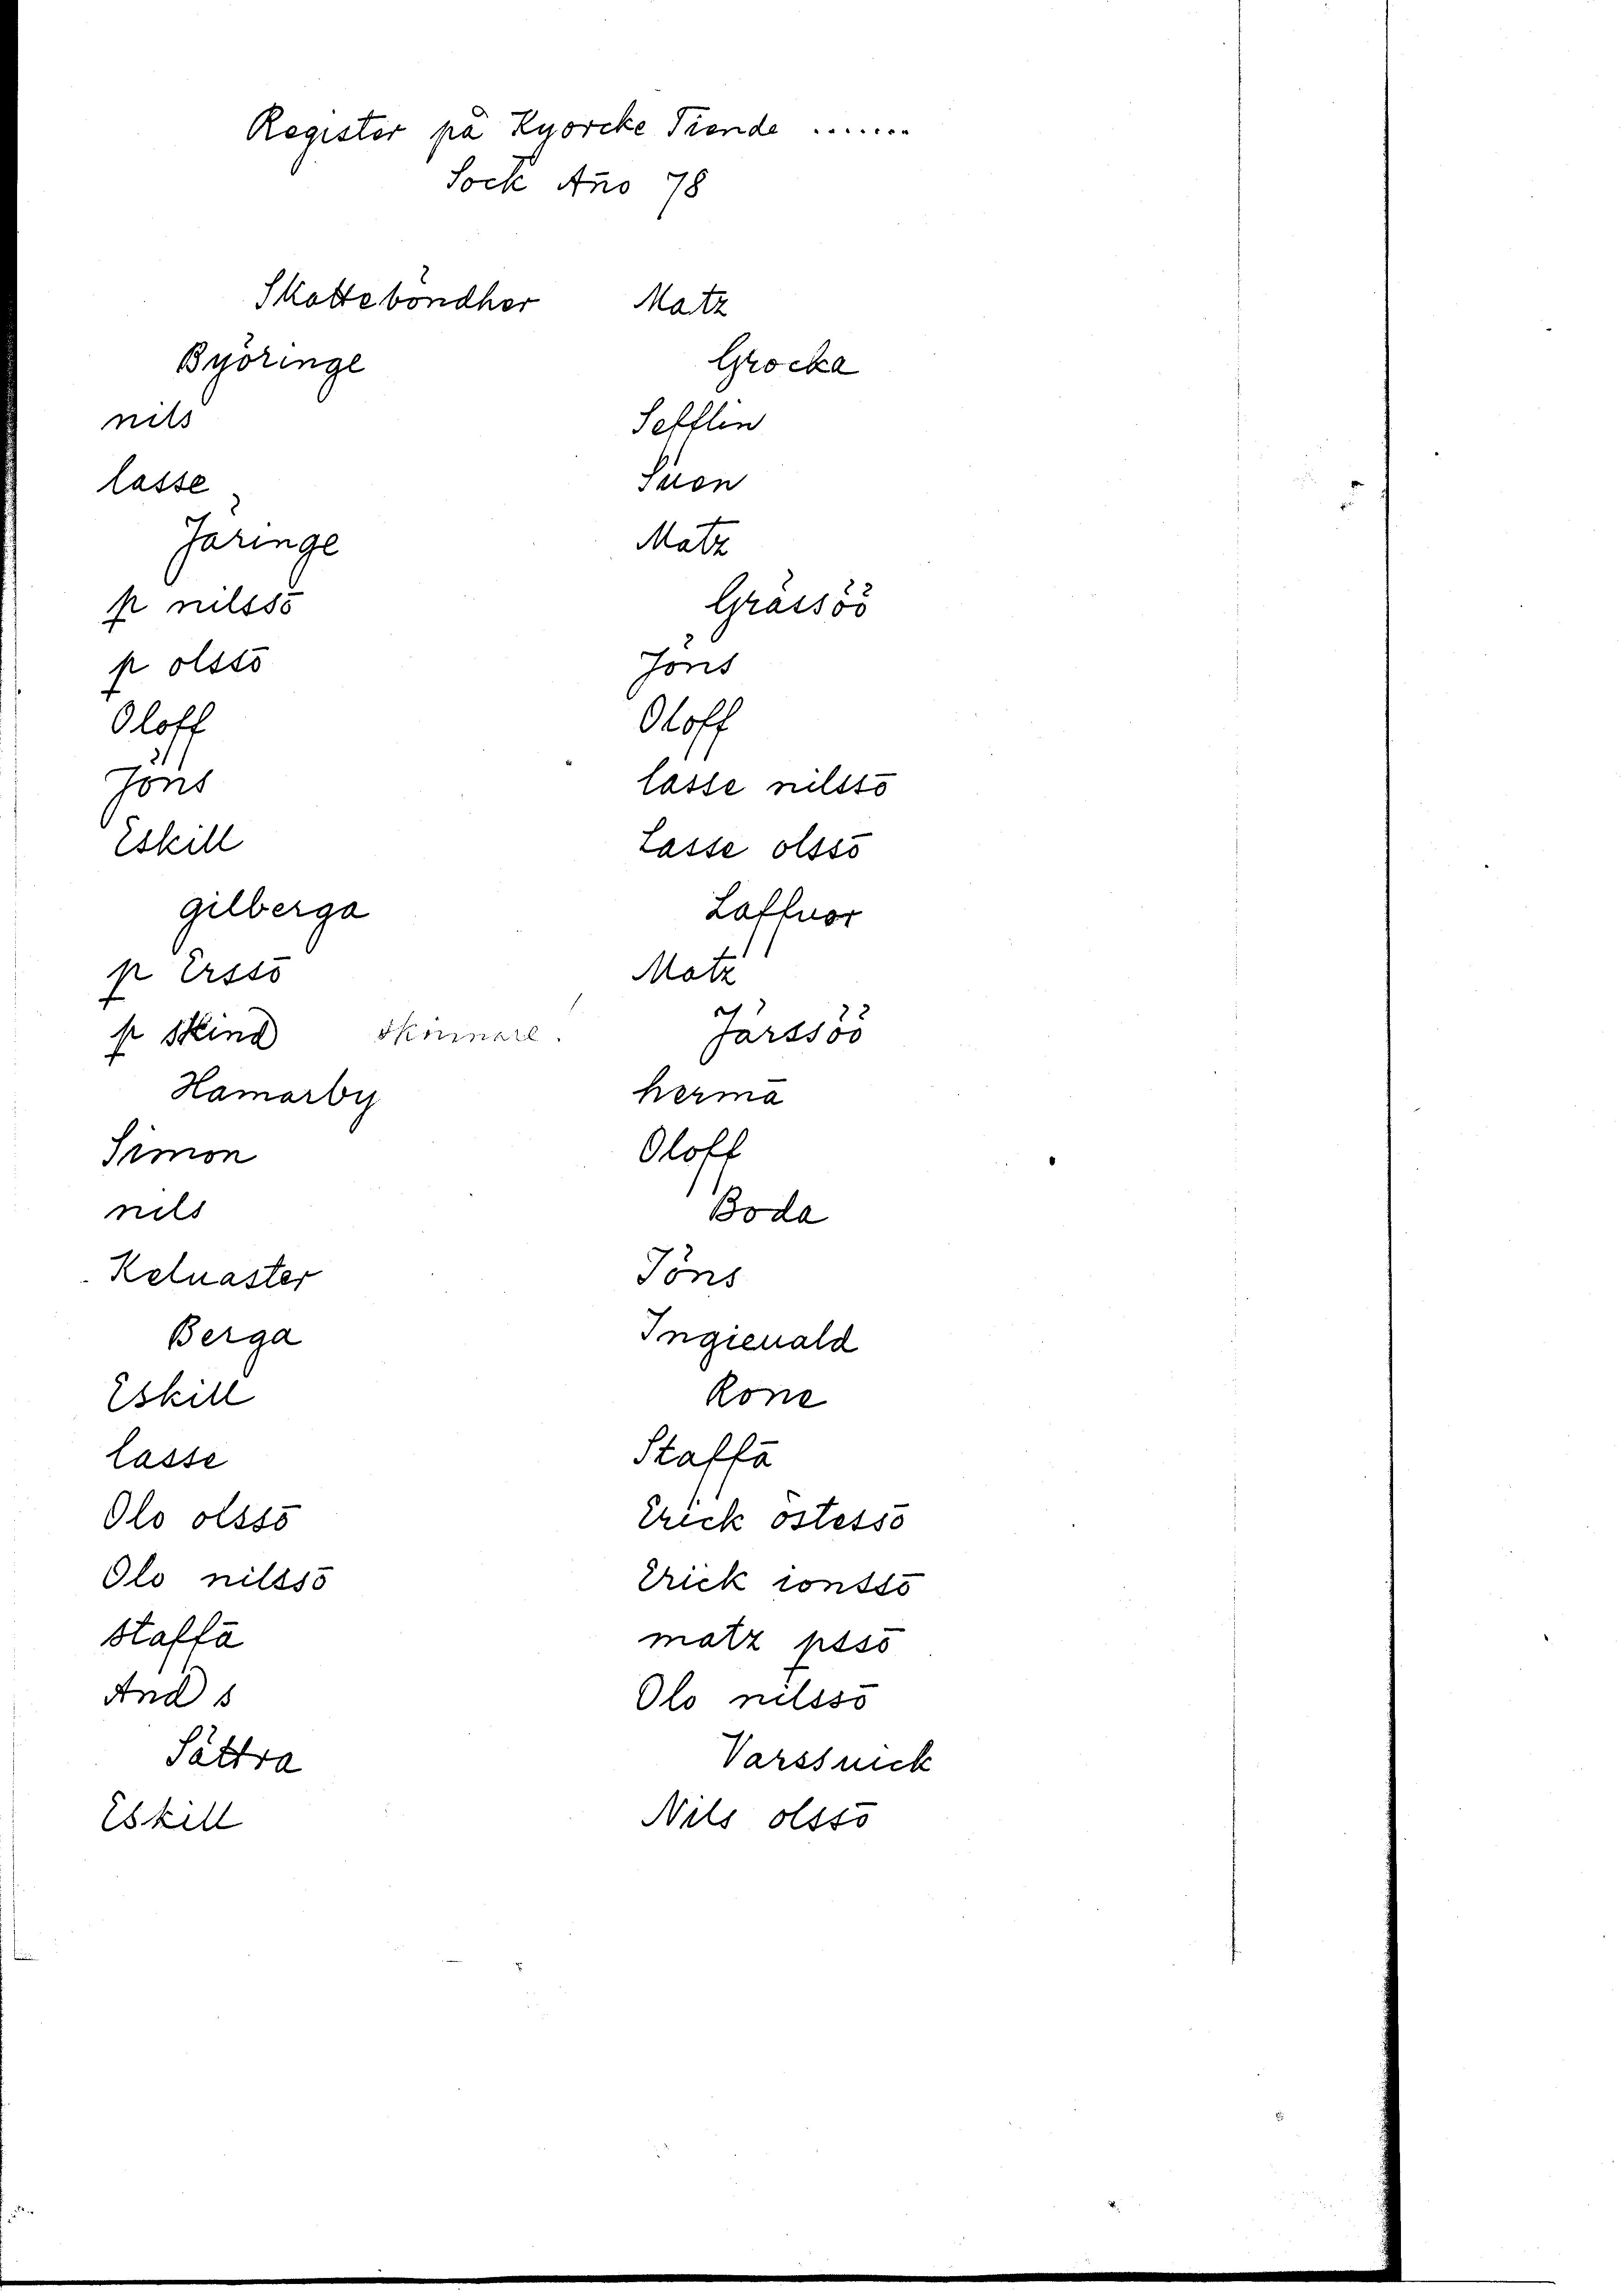 Register på Kyorcke Tiende .......
Sock Año 78
Skatteböndher
Byöringe
nils
lasse
Järinge
p nilssō
p olssō
Oloff
Jöns
Eskill
gilberga
p Erssō
p skind skinnare.
Hamarby
Simon
nils
Keluaster
Berga
Eskill
lasse
Olo olssō
Olo nilssō
staffā
And s
Sättra
Eskill
Matz
Grocka
Sefflin
Suen
Matz
Grässöö
Jöns
Oloff
lasse nilssō
Lasse olssō
Laffuor
Matz
Järssöö
hermā
Oloff
Boda
Jöns
Ingieuald
Rone
Staffā
Erick östessō
Erick ionssō
matz pssō
Olo nilssō
Varssuick
Nils olssō